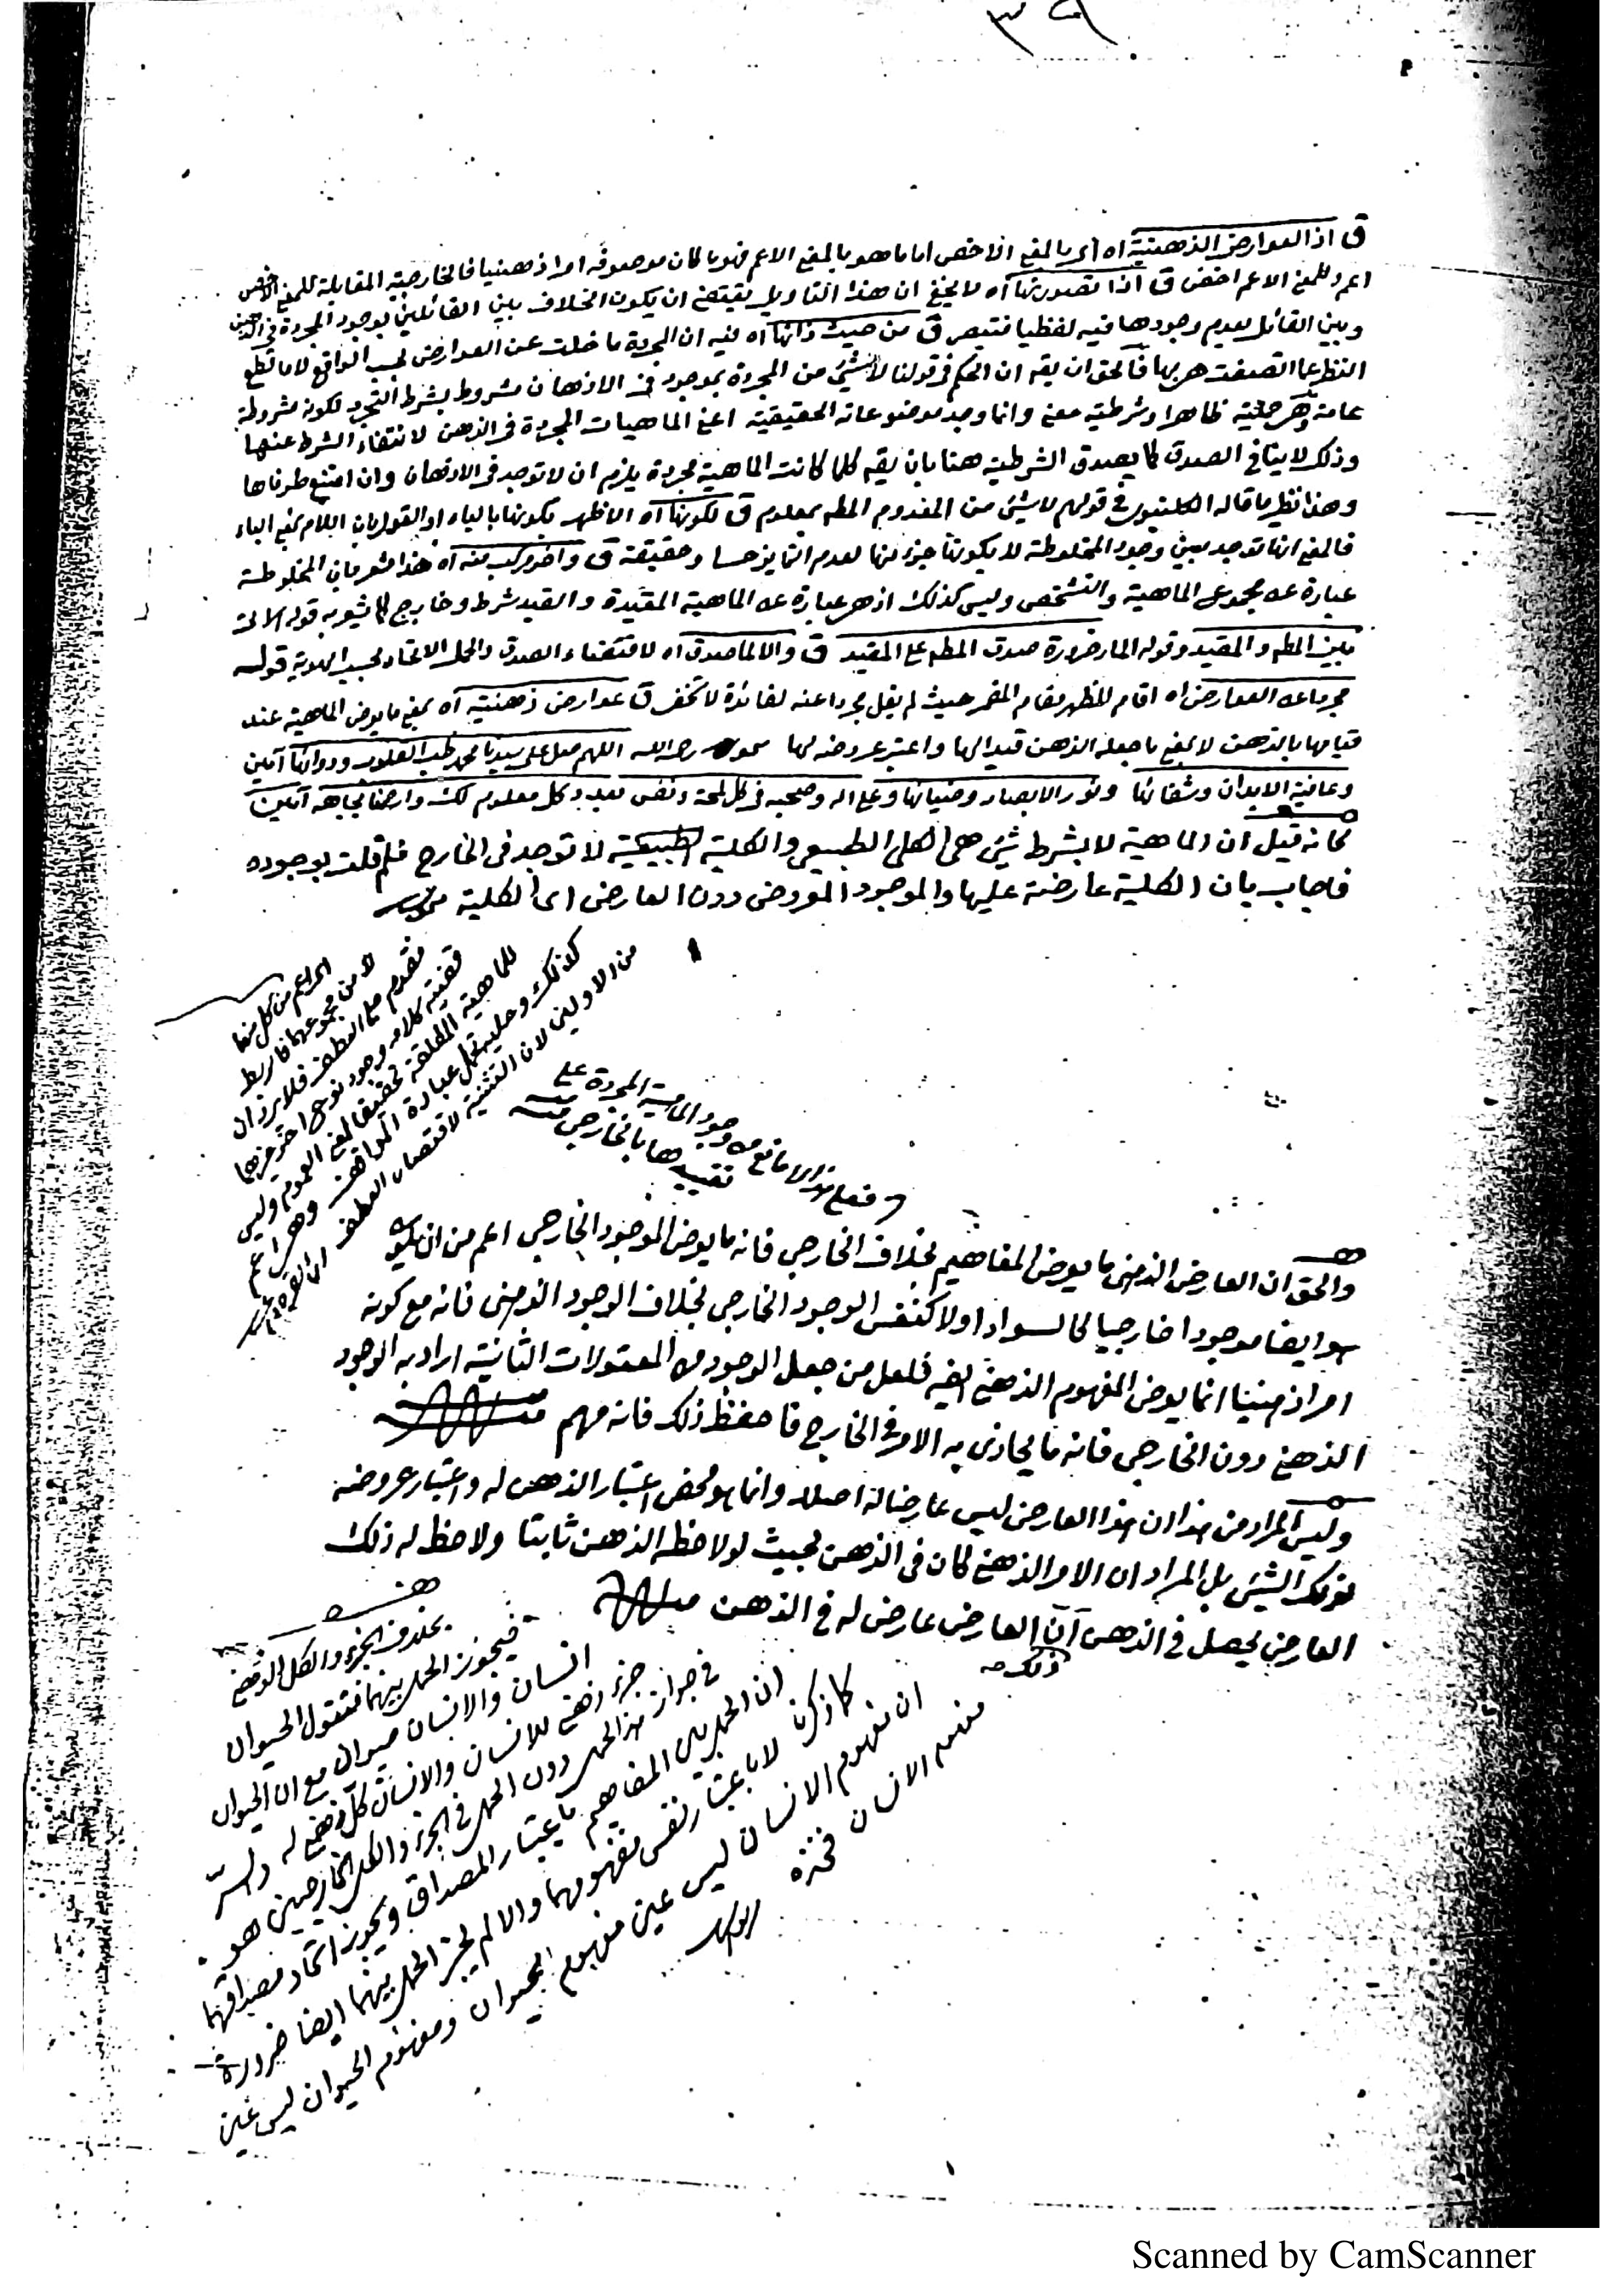 ٣٩
ق اذ العوارض الذهنية اه اى بالمعنى الاخص اما ما هو بالمعنى الاعم فهو ما كان موصوفه امرا ذهنيا فالخارجية المقابلة للمعنى الاخص
اعم وللمعنى الاعم اخص ق اذا تصورتها اه لا يخفى ان هذا التأويل يقتضى ان يكون الخلاف بين القائلين بوجود المجردة فى الذهن
وبين القائل بعدم وجودها فيه لفظيا فتبصر ق من حيث ذاتها اه فيه ان المجردة ما خلت عن العوارض بحسب الواقع لا ما قطع
النظر عما اتصفت هى بها فالحق ان يقه ان الحكم فى قولنا لا شئ من المجردة بموجود فى الاذهان مشروط بشرط التجرد لكونه مشروطة
عامة وهى حملية ظاهرا وشرطية معنى وانما وجد موضوعاته الحقيقية اعنى الماهيات المجردة فى الذهن لانتفاء الشرط عنها
وذلك لا ينافى الصدق كما يصدق الشرطية هنا بان يقه كلما كانت الماهية مجردة يلزم ان لا توجد فى الاذهان وان امتنع طرفاها
وهذا نظير ما قاله الكلنبوى فى قولهم لا شئ من المعدوم المطه بمعلوم ق لكونها اه الاظهر بكونها بالباء او القول بان اللام بمعنى الباء
فالمعنى انها توجد بعين وجود المخلوطة لا بكونها جزء لها لعدم التمايز حسا وحقيقة ق وآخر مركب منه اه هذا مشعر بان المخلوطة
عبارة عن مجموع الماهية والتشخص وليس كذلك اذ هى عبارة عن الماهية المقيدة والقيد شرط وخارج كما يشعر به قوله الاتى
بين المطه والمقيد وقوله المار ضرورة صدق المطه على المقيد ق والا لما صدق اه لاقتضاء الصدق والحمل الاتحاد بحسب الهوية قوله
مجردا عن العوارض اه اقام المظهر مقام المضمر حيث لم يقل مجردا عنه لفائدة لا تخفى ق عوارض ذهنية اه بمعنى ما يعرض الماهية عند
قيامها بالذهن لا بمعنى ما جعله الذهن قيدا لها واعتبر عروضه لها رحمه الله اللهم صل على سيدنا محمد طب القلوب ودوائها آمين
وعافية الابدان وشفائها ونور الابصار وضيائها وعلى اله وصحبه فى كل لمحة ونفس بعدد كل معلوم لك وارضنا بجاهه آمين
كانه قيل ان الماهية لا بشرط شئ هى الكلى الطبيعى والكلية الطبيعية لا توجد فى الخارج فلم قلت بوجوده
فاجاب بان الكلية عارضة عليها والموجود المعروض دون العارض اى الكلية
اى اعم من كل منهما
لا من مجموعهما فاربط
مقدم على العطف فلا يرد ان
قضية كلامه وجود نوع اخر غيرهما
للماهية المطلقة تحقيقا لمعنى العموم وليس
كذلك وعليه تحمل عبارة المواقف وهى اعم
من الاولين لان التثنية لاقتصار العطف
فعلى هذا لا مانع من وجود الماهية المجردة على
تقييدها بالخارجى منه
والحق ان العارض الذهنى ما يعرض المفاهيم بخلاف الخارجى فانه ما يعرض الموجود الخارجى اعم من ان يكون
هو ايضا موجودا خارجيا كالسواد او لا كنفس الوجود الخارجى بخلاف الوجود الذهنى فانه مع كونه
امرا ذهنيا انما يعرض المفهوم الذهنى ايضه فلعل من جعل الوجود من المعقولات الثانية اراد به الوجود
الذهنى دون الخارجى فانه ما يحاذى به الامر فى الخارج فاحفظ ذلك فانه مهم
وليس المراد من هذا ان هذا العارض ليس عارضا له اصلا وانما هو محض اعتبار الذهن له واعتبار عروضه
لذلك الشئ بل المراد ان الامر الذهنى كان فى الذهن بحيث لو لاحظه الذهن ثابتا ولاحظ له ذلك
العارض يحصل فى الذهن ان العارض عارض له فى الذهن
ذلك
بخلاف الجزء والكل الذهنى
فيجوز الحمل بينهما فتقول الحيوان
انسان والانسان حيوان مع ان الحيوان
جزء ذهنى للانسان والانسان كل ذهنى له والسر
فى جواز هذا الحمل دون الحمل فى الجزء والكل الخارجيين هو
ان الحمل بين المفاهيم باعتبار المصداق ويجوز اتحاد مصداقهما
كما ذكرنا لا باعتبار نفس مفهومهما والا لم يجز الحمل بينهما ايضا ضرورة
ان مفهوم الانسان ليس عين مفهوم الحيوان ومفهوم الحيوان ليس عين
مفهوم الانسان
Scanned by CamScanner